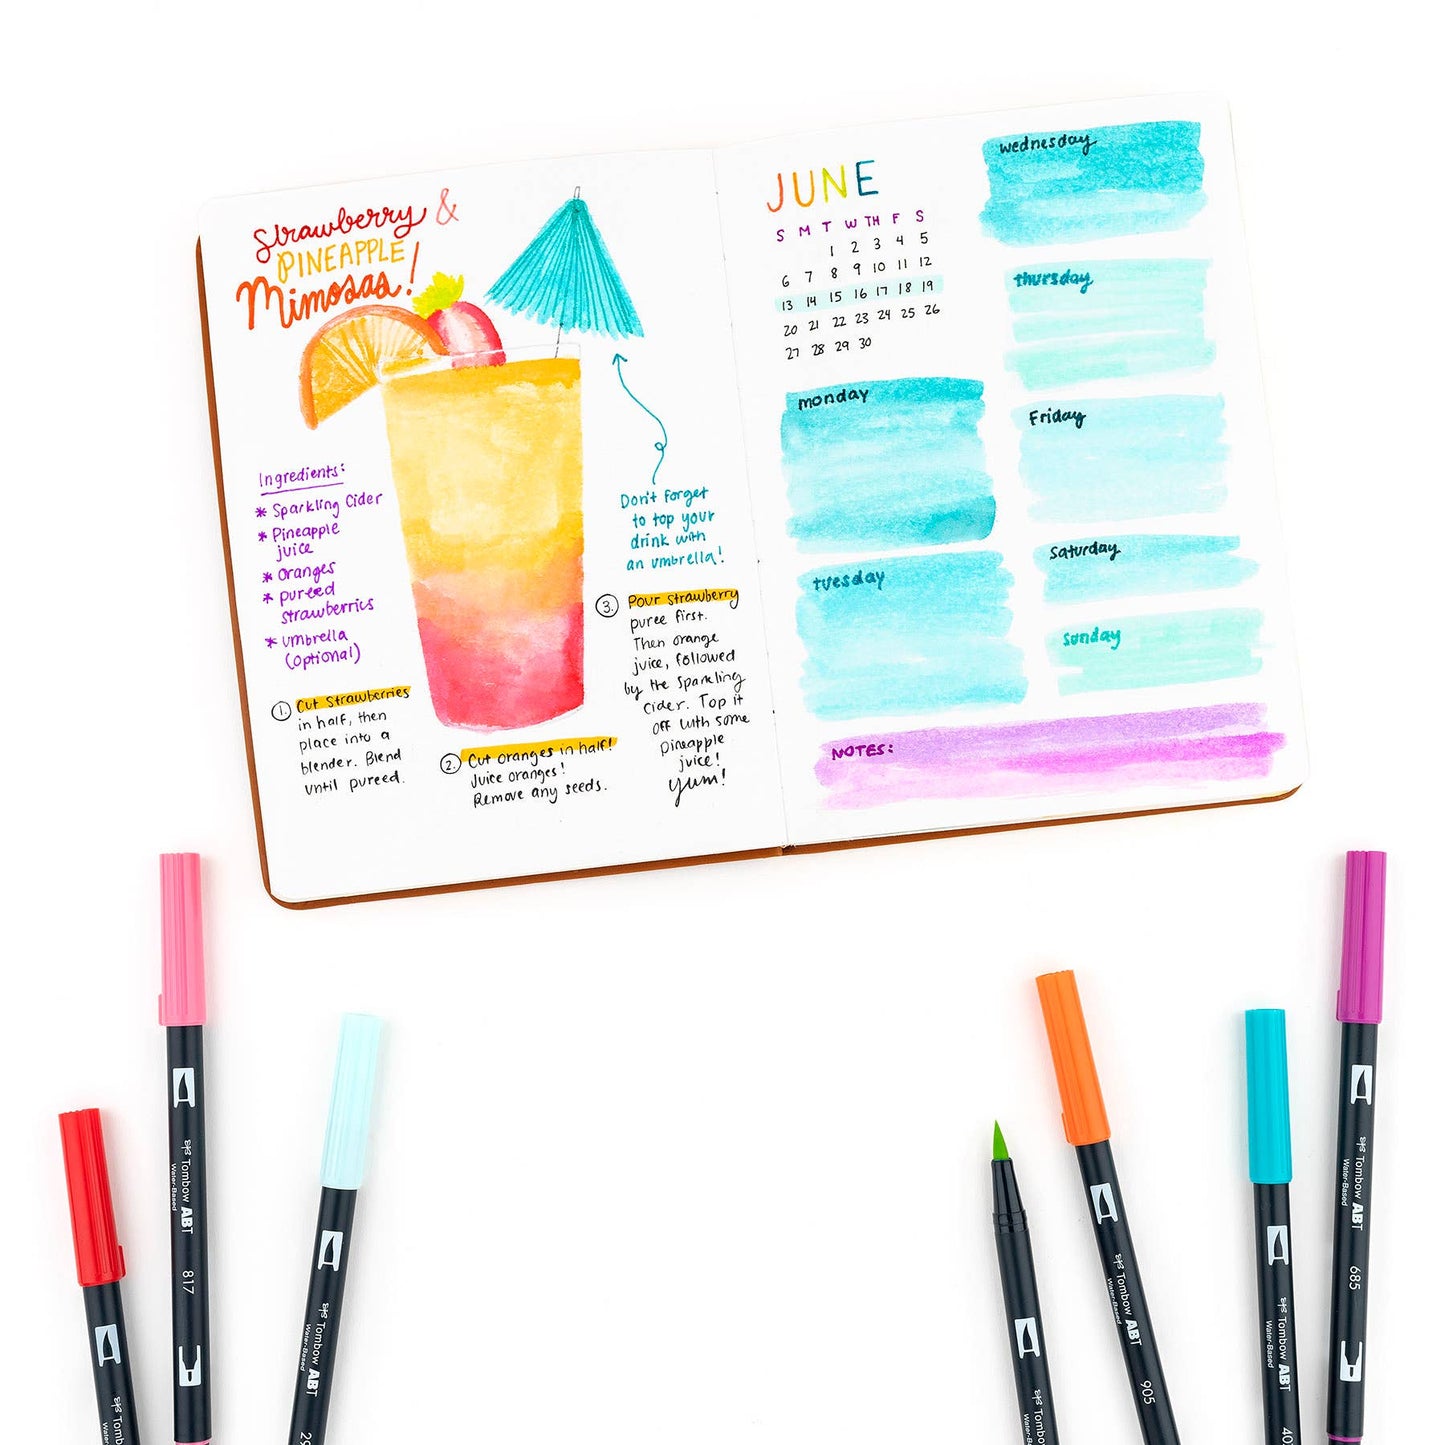 Strawberry &
PINEAPPLE
Mimosas!
Ingredients:
* Sparkling Cider
* Pineapple
juice
* oranges
* pureed
strawberries
* umbrella
(optional)
Don't forget
to top your
drink with
an umbrella!
1. Cut Strawberries
in half, then
place into a
blender. Blend
until pureed.
2. Cut oranges in half!
Juice oranges!
Remove any seeds.
3. Pour strawberry
puree first.
Then orange
juice, followed
by the sparkling
cider. Top it
off with some
pineapple
juice!
yum!
JUNE
S M T W TH F S
1 2 3 4 5
6 7 8 9 10 11 12
13 14 15 16 17 18 19
20 21 22 23 24 25 26
27 28 29 30
monday
tuesday
wednesday
thursday
Friday
Saturday
sunday
NOTES:
Tombow ABT
Water-Based
817
Tombow ABT
Water-Based
29
Tombow
Water-Based
Tombow
Tombow ABT
Water-Based
905
Tombow ABT
Water-Based
40
Tombow ABT
Water-Based
685